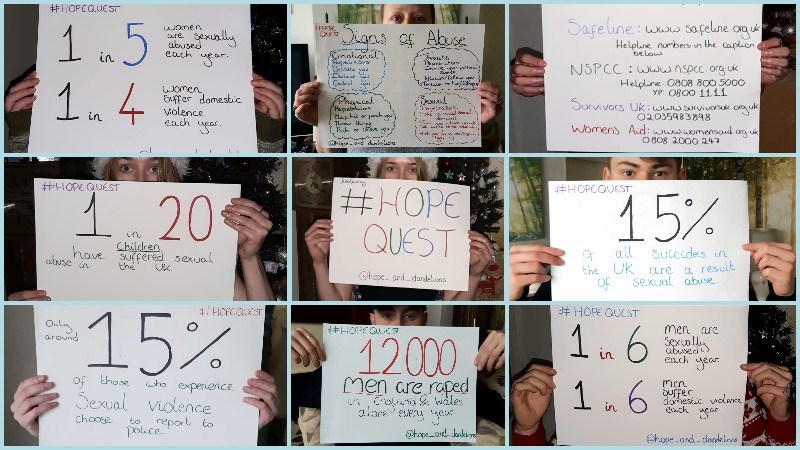 #HOPEQUEST
1 in 5
women
are sexually
abused
each year.
1 in 4
women
suffer domestic
violence
each year.
#HOPE
QUEST
Signs of Abuse
Emotional
Threats
Physical
Sexual
@hope_and_dandelions
Safeline: www.safeline.org.uk
Helpline numbers in the caption
below
NSPCC: www.nspcc.org.uk
Helpline: 0808 800 5000
YP: 0800 1111
Survivors UK: www.survivorsuk.org
02035983898
Women's Aid: www.womensaid.org.uk
0808 2000 247
#HOPEQUEST
1 in 20
Children
have suffered sexual
abuse in the UK.
#HOPE
QUEST
@hope_and_dandelions
#HOPEQUEST
15%
of all suicides in
the UK are a result
of sexual abuse.
#HOPEQUEST
Only
around
15%
of those who experience
Sexual violence
choose to report to
police.
#HOPEQUEST
12000
men are raped
in England & Wales
alone every year
@hope_and_dandelions
#HOPEQUEST
1 in 6
men are
sexually
abused
each year.
1 in 6
men
suffer
domestic violence
each year
@hope_and_dandelions